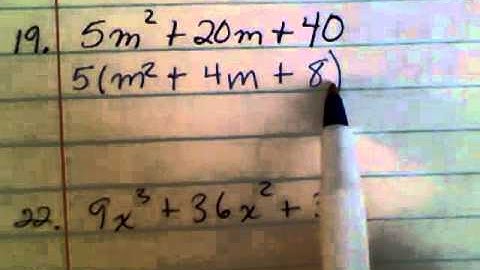 19. 5m² + 20m + 40
5(m² + 4m + 8)
22. 9x³ + 36x² +